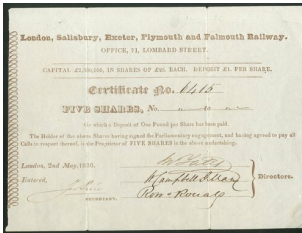 London, Salisbury, Exeter, Plymouth and Falmouth Railway.
OFFICE, 21, LOMBARD STREET.
CAPITAL IN SHARES OF EACH. DEPOSIT £1. PER SHARE.
Certificate No. 1415
FIVE SHARES, No. to
On which a Deposit of One Pound per Share has been paid.
The Holder of the above Shares having signed the Parliamentary engagement, and having agreed to pay all
Calls in respect thereof, is the Proprietor of FIVE SHARES in the above undertaking.
London, 2nd May, 1836.
Entered,
Campbell
Directors.
SECRETARY.